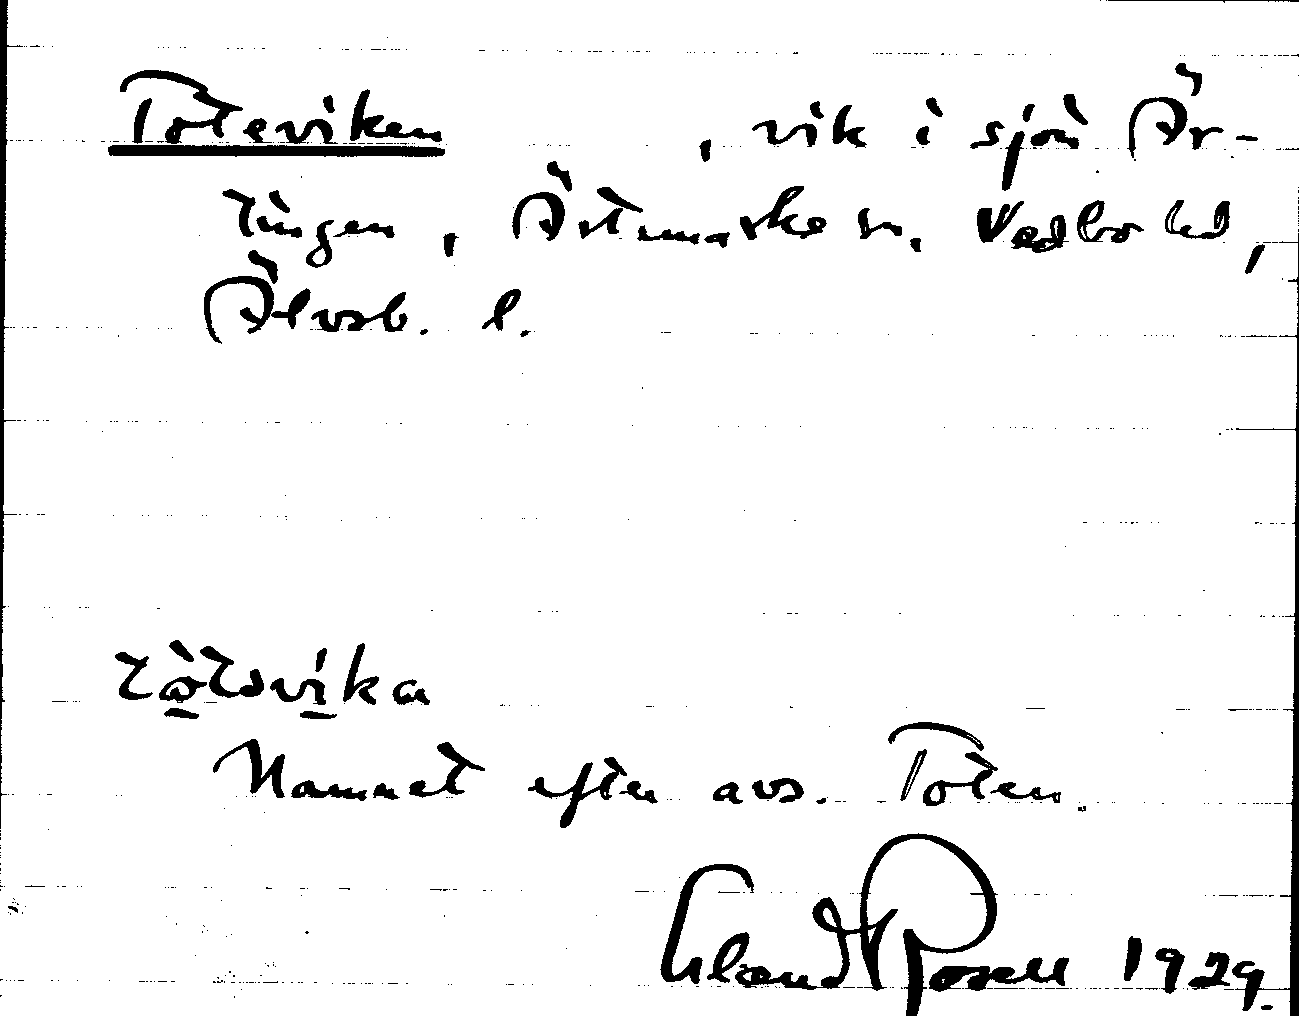 Toteviken , vik i sjön Är-
tingen, Ärtemarks sn. Vedbo hd,
Älvsb. l.
tåtəvika
Namnet efter avs. Toten.
Erland Rosell 1929.